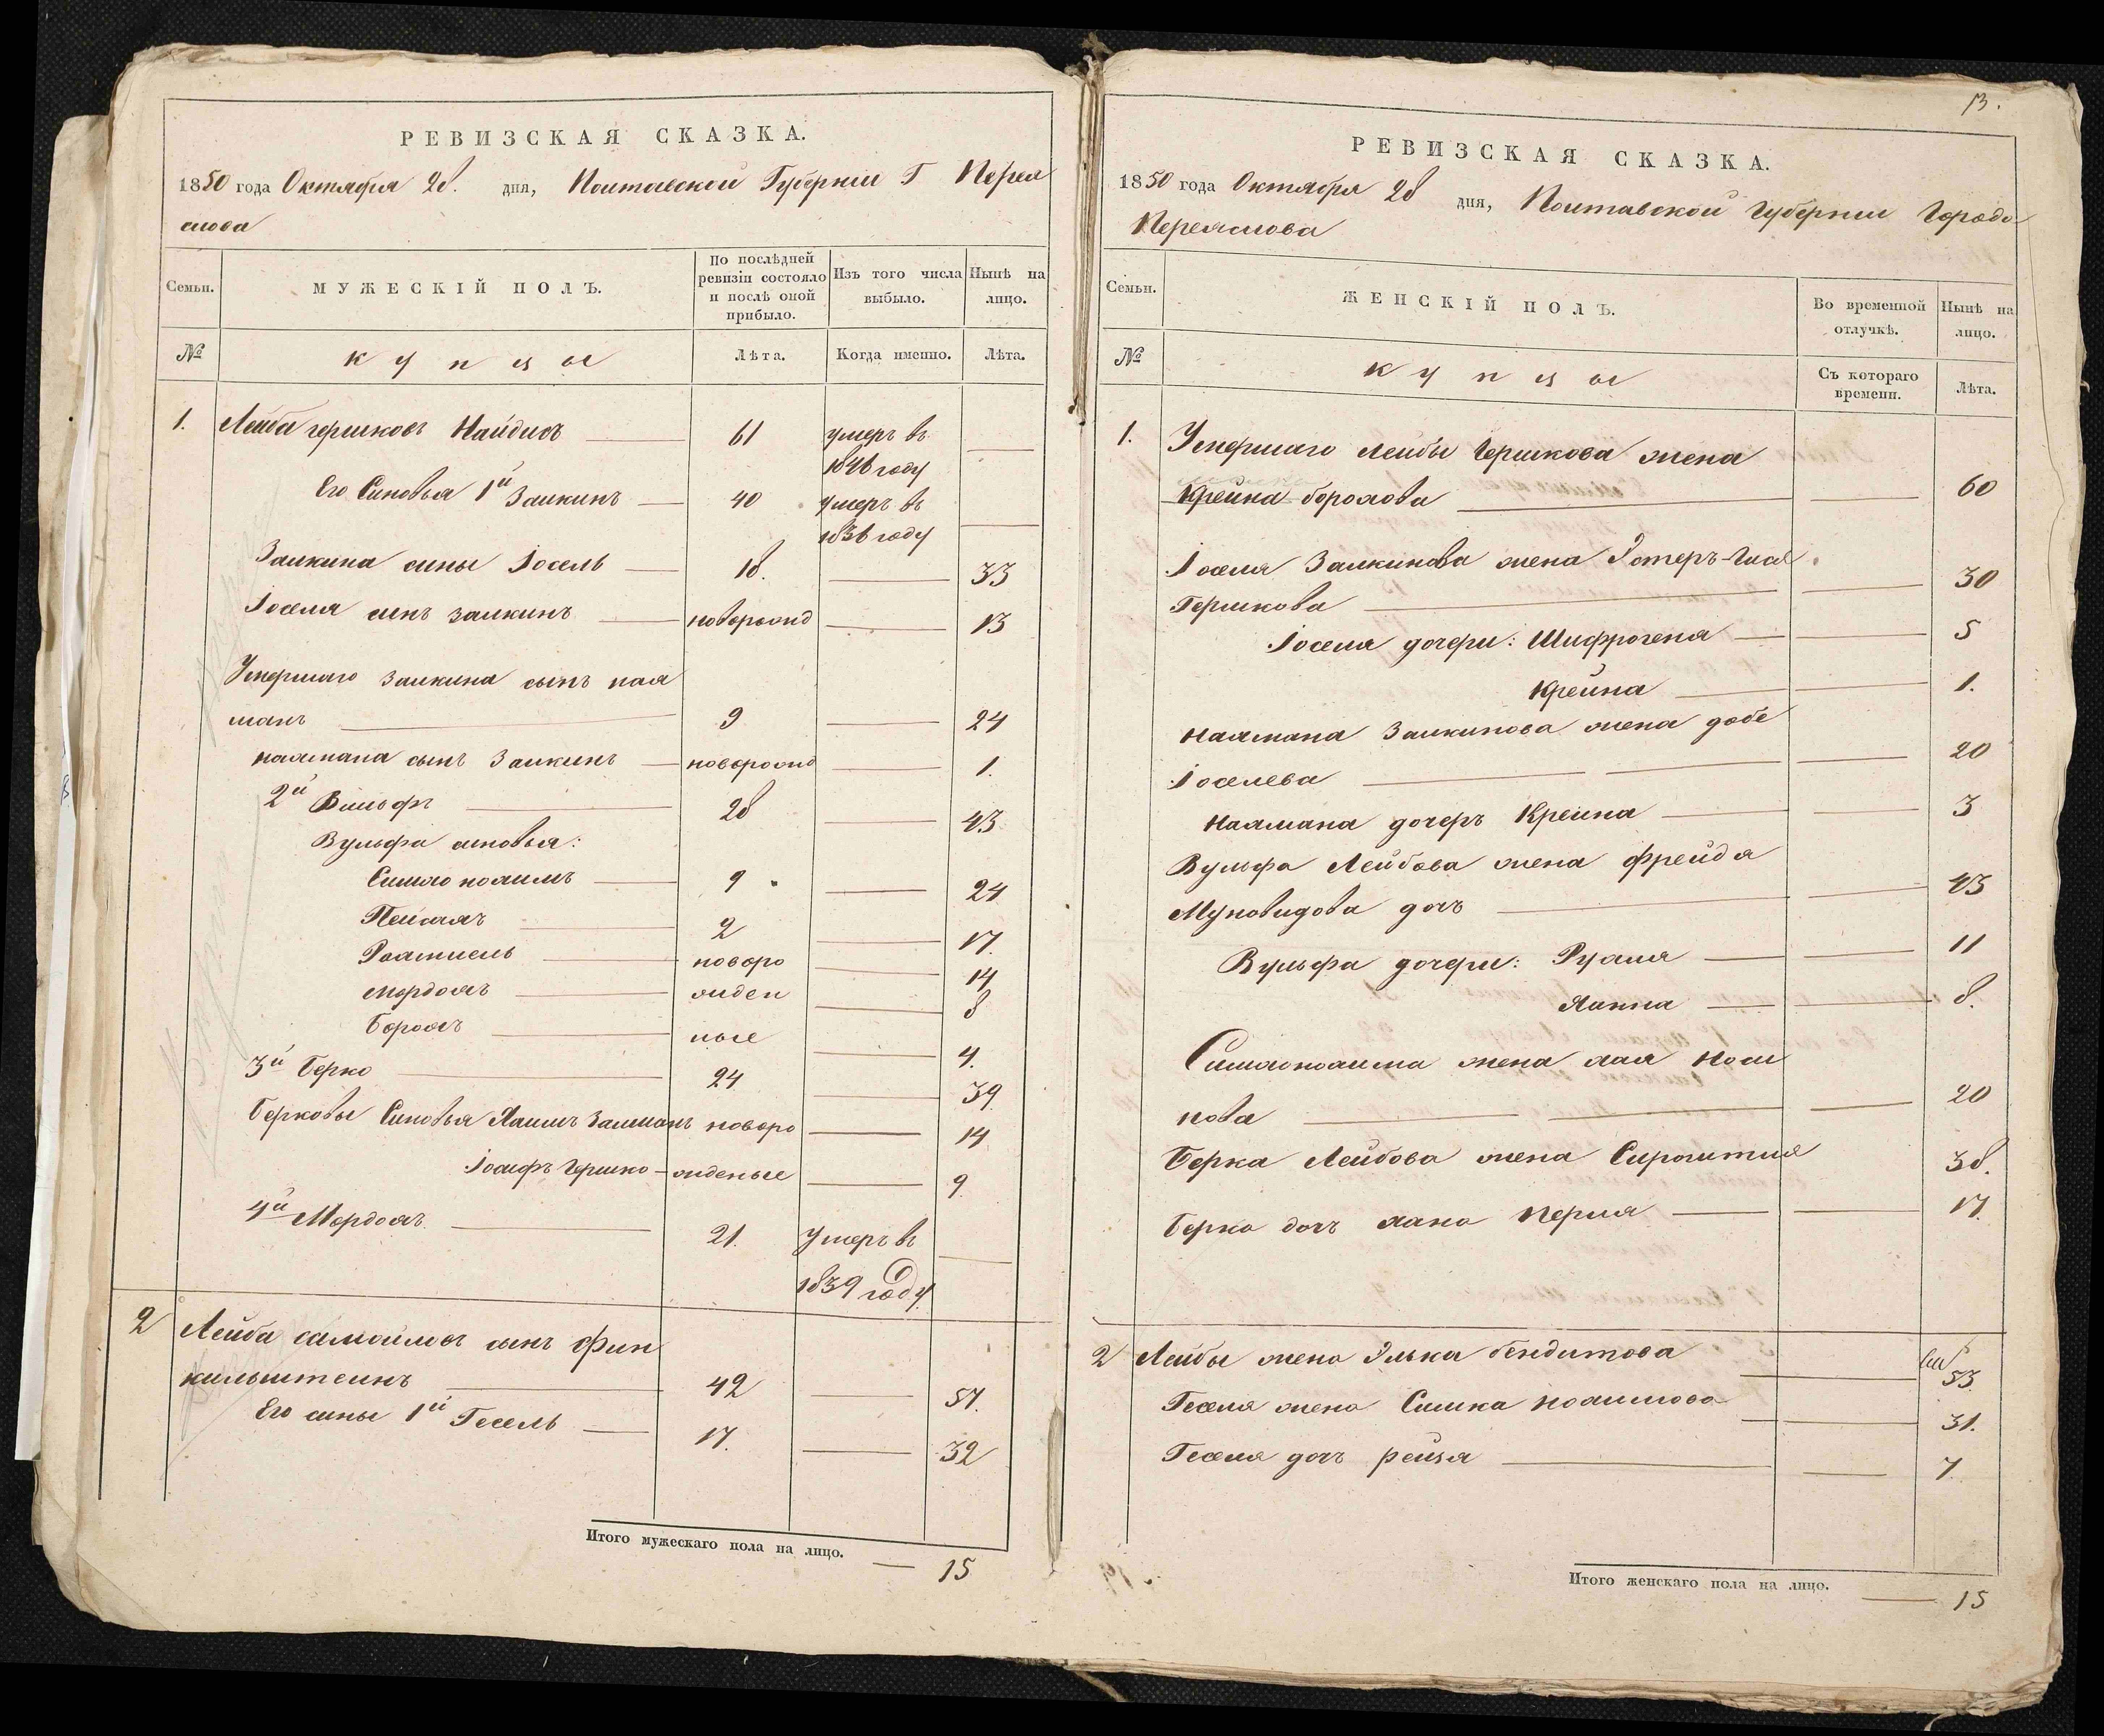 РЕВИЗСКАЯ СКАЗКА.
1850 года Октября 28. дня, Полтавской Губерніи Г Перея
слова
Семьи.
МУЖЕСКІЙ ПОЛЪ.
По послѣдней ревизіи состояло и послѣ оной прибыло.
Изъ того числа выбыло.
Нынѣ на лицо.
№
купцы
Лѣта.
Когда именно.
Лѣта.
1. Лейба гершковъ Найдисъ 61 умеръ въ
1846 году
Его Синовья 1й Залкинъ 40 умеръ въ
1836 году
Залкина сины Іосель 18. 33
Іоселя синъ залкинъ новорожд 13
Умершаго залкина сынъ нах
манъ 9 24
нахмана сынъ Залкинъ новорожд 1.
2й Вильфъ 28 43
Вульфа синовья:
Симхо нохимъ 9 24
Пейсахъ 2 17.
Рахмиель новоро 14
Мордохъ жден 8
Борохъ ные 4.
3й Берко 24 39
Берковы Синовья Хаимъ Залманъ новоро 14
Іосифъ Гершко жденые 9
4й Мордохъ 21. Умеръ въ
1839 году.
2 Лейба самойловъ сынъ Фин
кильштеинъ 42 57.
Его сины 1й Гесель 17. 32
Итого мужескаго пола на лицо. 15
13.
РЕВИЗСКАЯ СКАЗКА.
1850 года Октября 28 дня, Полтавской Губерніи Города
Переяслова
Семьи.
ЖЕНСКІЙ ПОЛЪ.
Во временной отлучкѣ.
Нынѣ на лицо.
№
купцы
Съ котораго времени.
Лѣта.
1. Умершаго Лейбы Гершкова жена
Крейна борохова 60
Іоселя Залкинова жена Эстеръ-Хася
Гершкова 30
Іоселя дочери: Шифрогеня 5
Крейна 1.
Нахмана Залкинова жена добе
Іоселева 20
Нахмана дочеръ Крейна 3
Вульфа Лейбова жена фрейда
Муновидова дочъ 43
Вульфа дочери: Рухля 11
Ханна 8.
Симхонохима жена хая Нохи
нова 20
Берка Лейбова жена 38.
Берка дочъ хана Перля 17.
2 Лейбы жена Элька бендитова 53.
Геселя жена Симка нохимова 31.
Геселя дочъ рейзя 7
Итого женскаго пола на лицо. 15